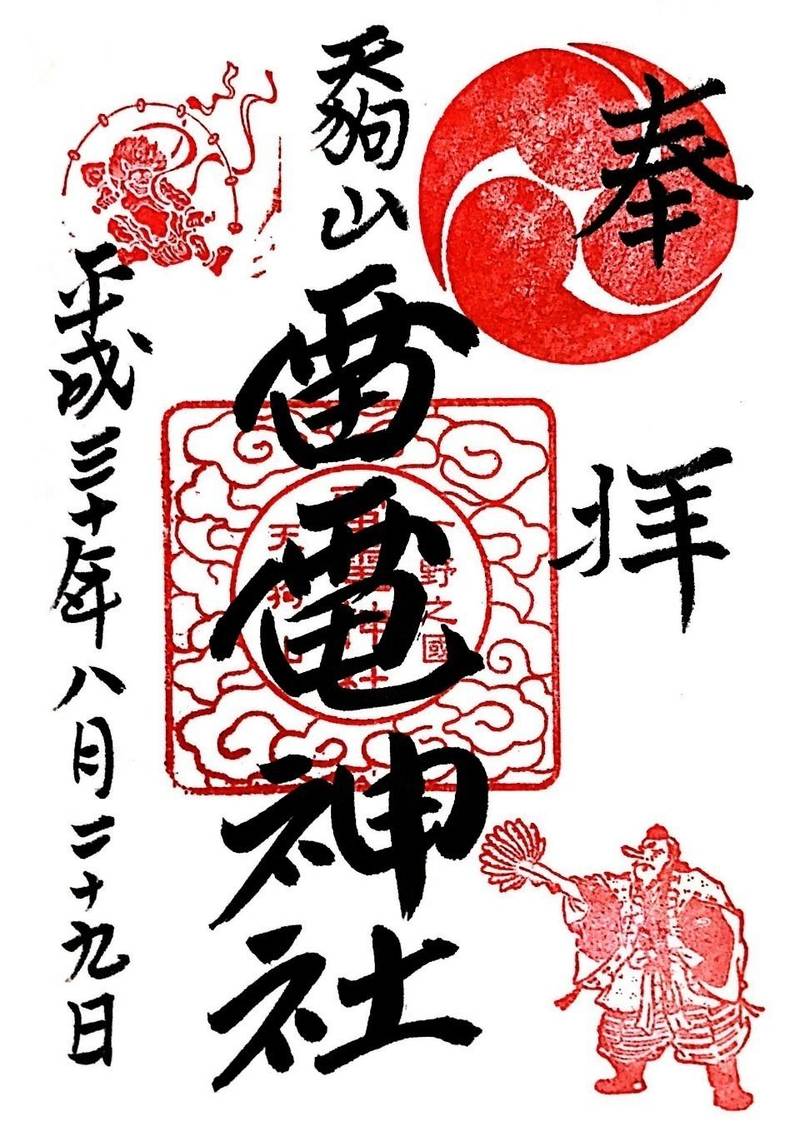 奉
拝
天狗山
雷電神社
平成三十年八月二十九日
野之國
天狗